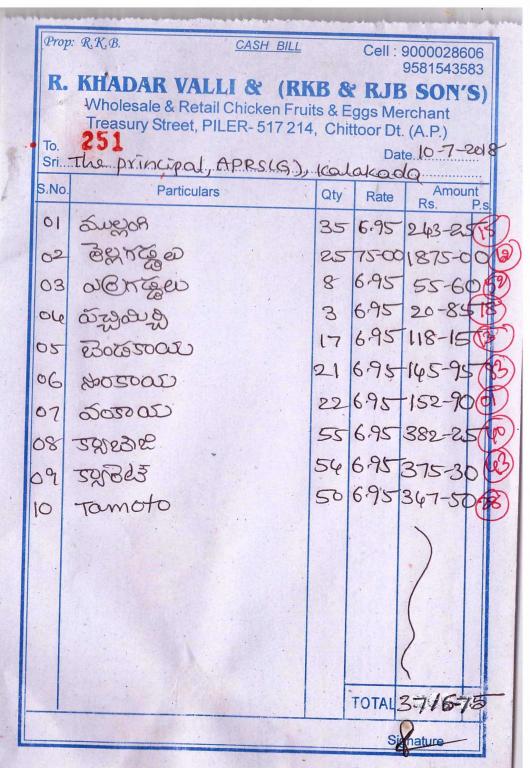 Prop: R.K.B. CASH BILL Cell : 9000028606
9581543583
R. KHADAR VALLI & (RKB & RJB SON'S)
Wholesale & Retail Chicken Fruits & Eggs Merchant
Treasury Street, PILER- 517 214, Chittoor Dt. (A.P.)
To. 251 Date. 10-7-2018
Sri. The principal, APRS(G), Kalakada
S.No. Particulars Qty Rate Amount
Rs. P.s
01 ముల్లంగి 35 6.95 243-25 15
02 తెల్లగడ్డలు 25 75-00 1875-00
03 ఎర్రగడ్డలు 8 6.95 55-60
04 పచ్చిమిర్చి 3 6.95 20-85 18
05 బెండకాయ 17 6.95 118-15
06 సొరకాయ 21 6.95 145-95
07 వంకాయ 22 6.95 152-90 01
08 క్యాబేజి 55 6.95 382-25
09 క్యారెట్ 54 6.95 375-30 43
10 Tamoto 50 6.95 347-50
TOTAL 3716-75
Signature